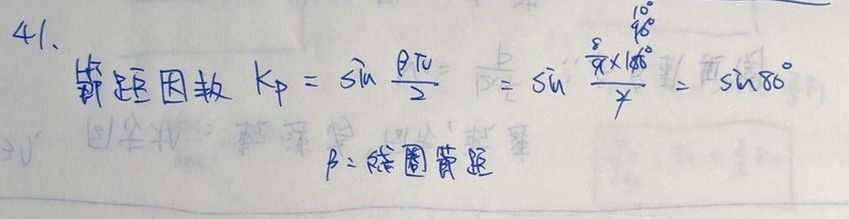 41.
節距因數 Kp = sin βπ/2 = sin (8/9 × 180°)/2 = sin 80°
β = 線圈節距